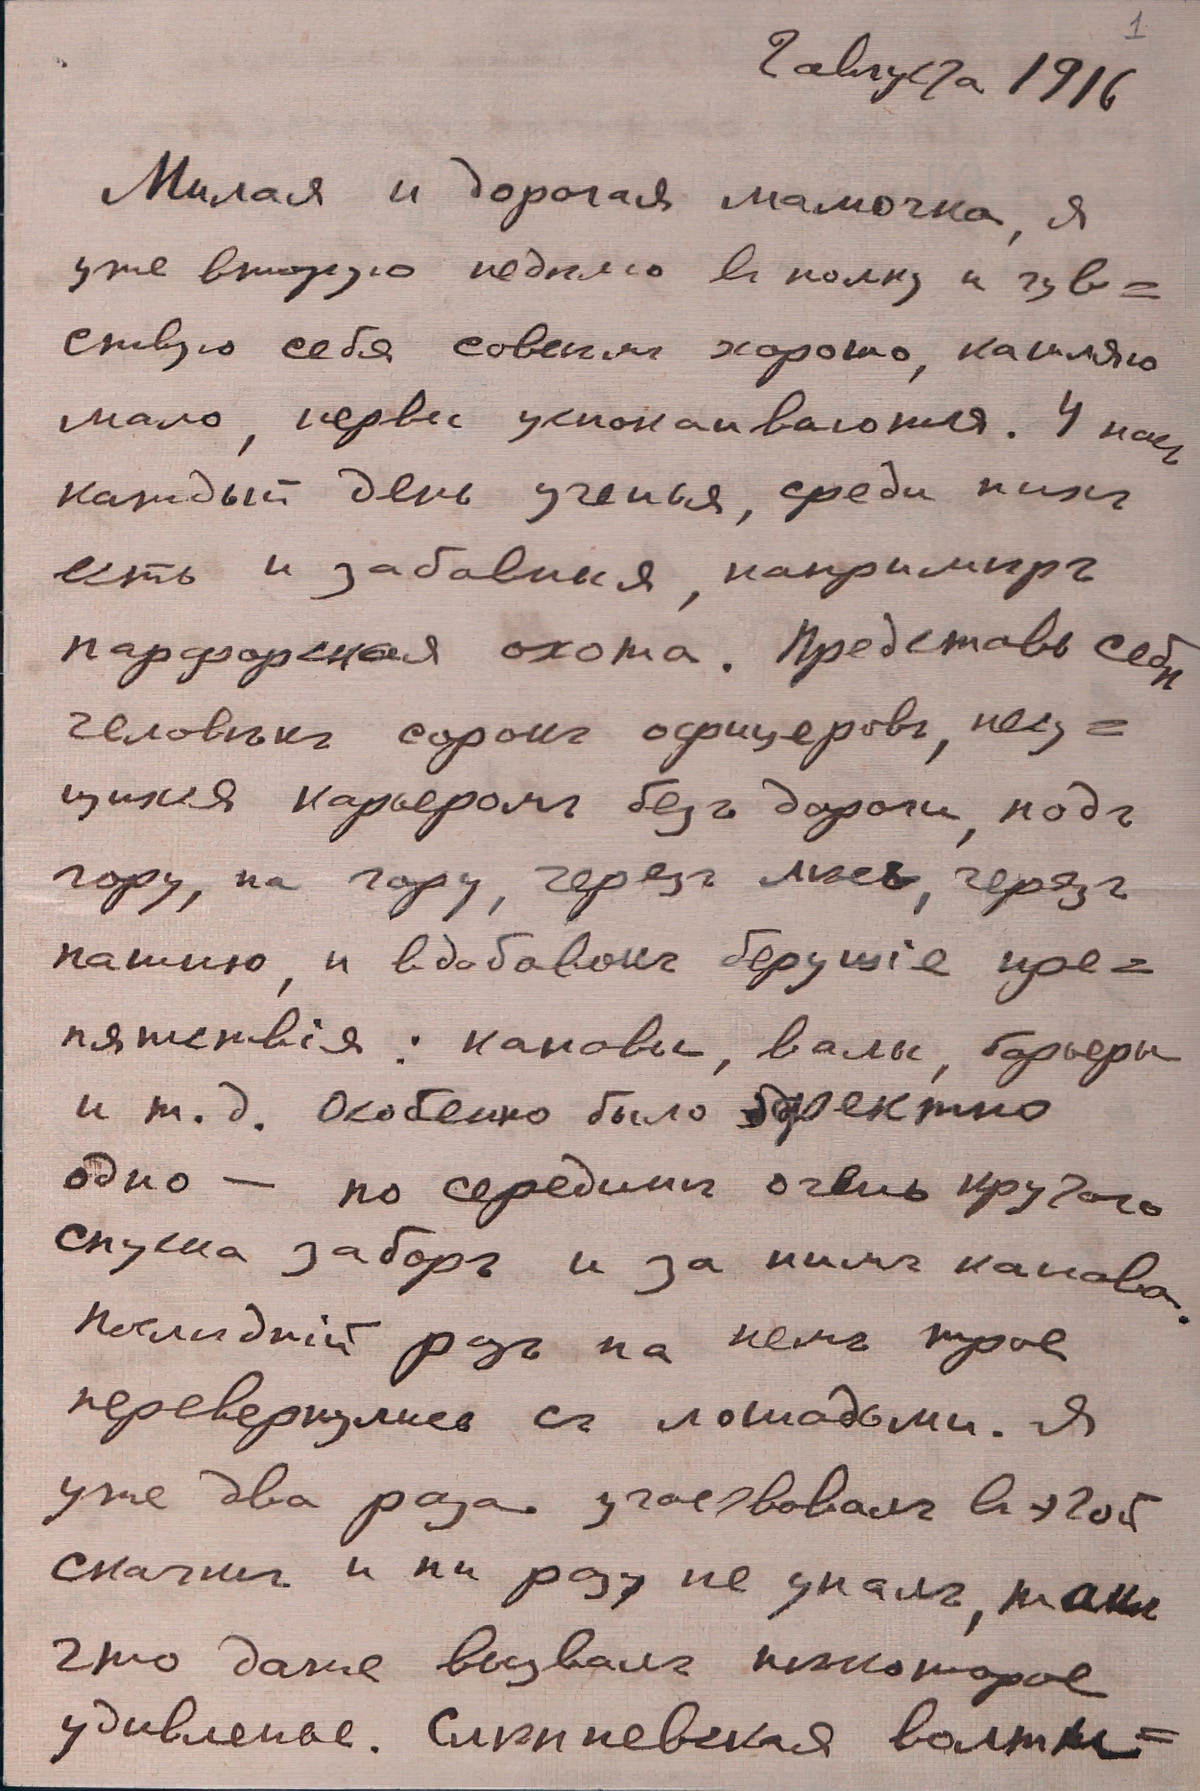 1
2 августа 1916
Милая и дорогая мамочка, я
уже вторую недѣлю въ полку и чув=
ствую себя совсѣмъ хорошо, кашляю
мало, нервы успокаиваются. У насъ
каждый день ученья, среди нихъ
есть и забавныя, напримѣръ
парфорсная охота. Представь себѣ
человѣкъ сорокъ офицеровъ, несу=
щихся карьеромъ безъ дороги, подъ
гору, на гору, черезъ лѣсъ, черезъ
пашню, и вдобавокъ берущіе пре=
пятствія: канавы, валы, барьеры
и т.д. Особенно было эффектно
одно — по серединѣ очень крутого
спуска заборъ и за нимъ канава.
Послѣдній разъ на немъ трое
перевернулись съ лошадьми. Я
уже два раза участвовалъ въ этой
скачкѣ и ни разу не упалъ, такъ
что даже вызвалъ нѣкоторое
удивленье. Слѣпневская вольти=